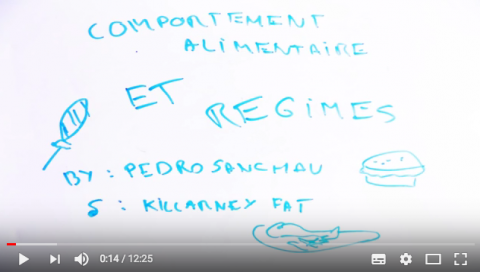 COMPORTEMENT
ALIMENTAIRE
ET
REGIMES
BY : PEDRO SANCHAU
S : KILLARNEY FAT
0:14 / 12:25